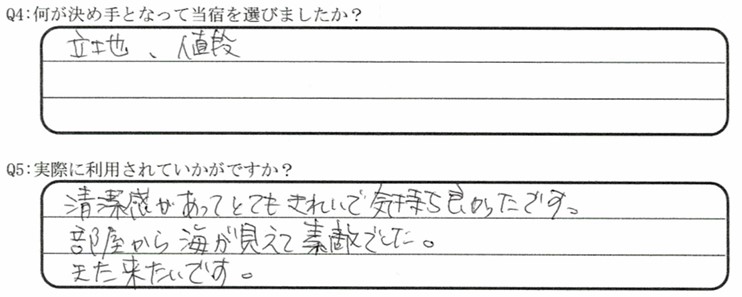 Q4:何が決め手となって当宿を選びましたか？
立地、値段
Q5:実際に利用されていかがですか？
清潔感があってとてもきれいで気持ち良かったです。
部屋から海が見えて素敵でした。
また来たいです。